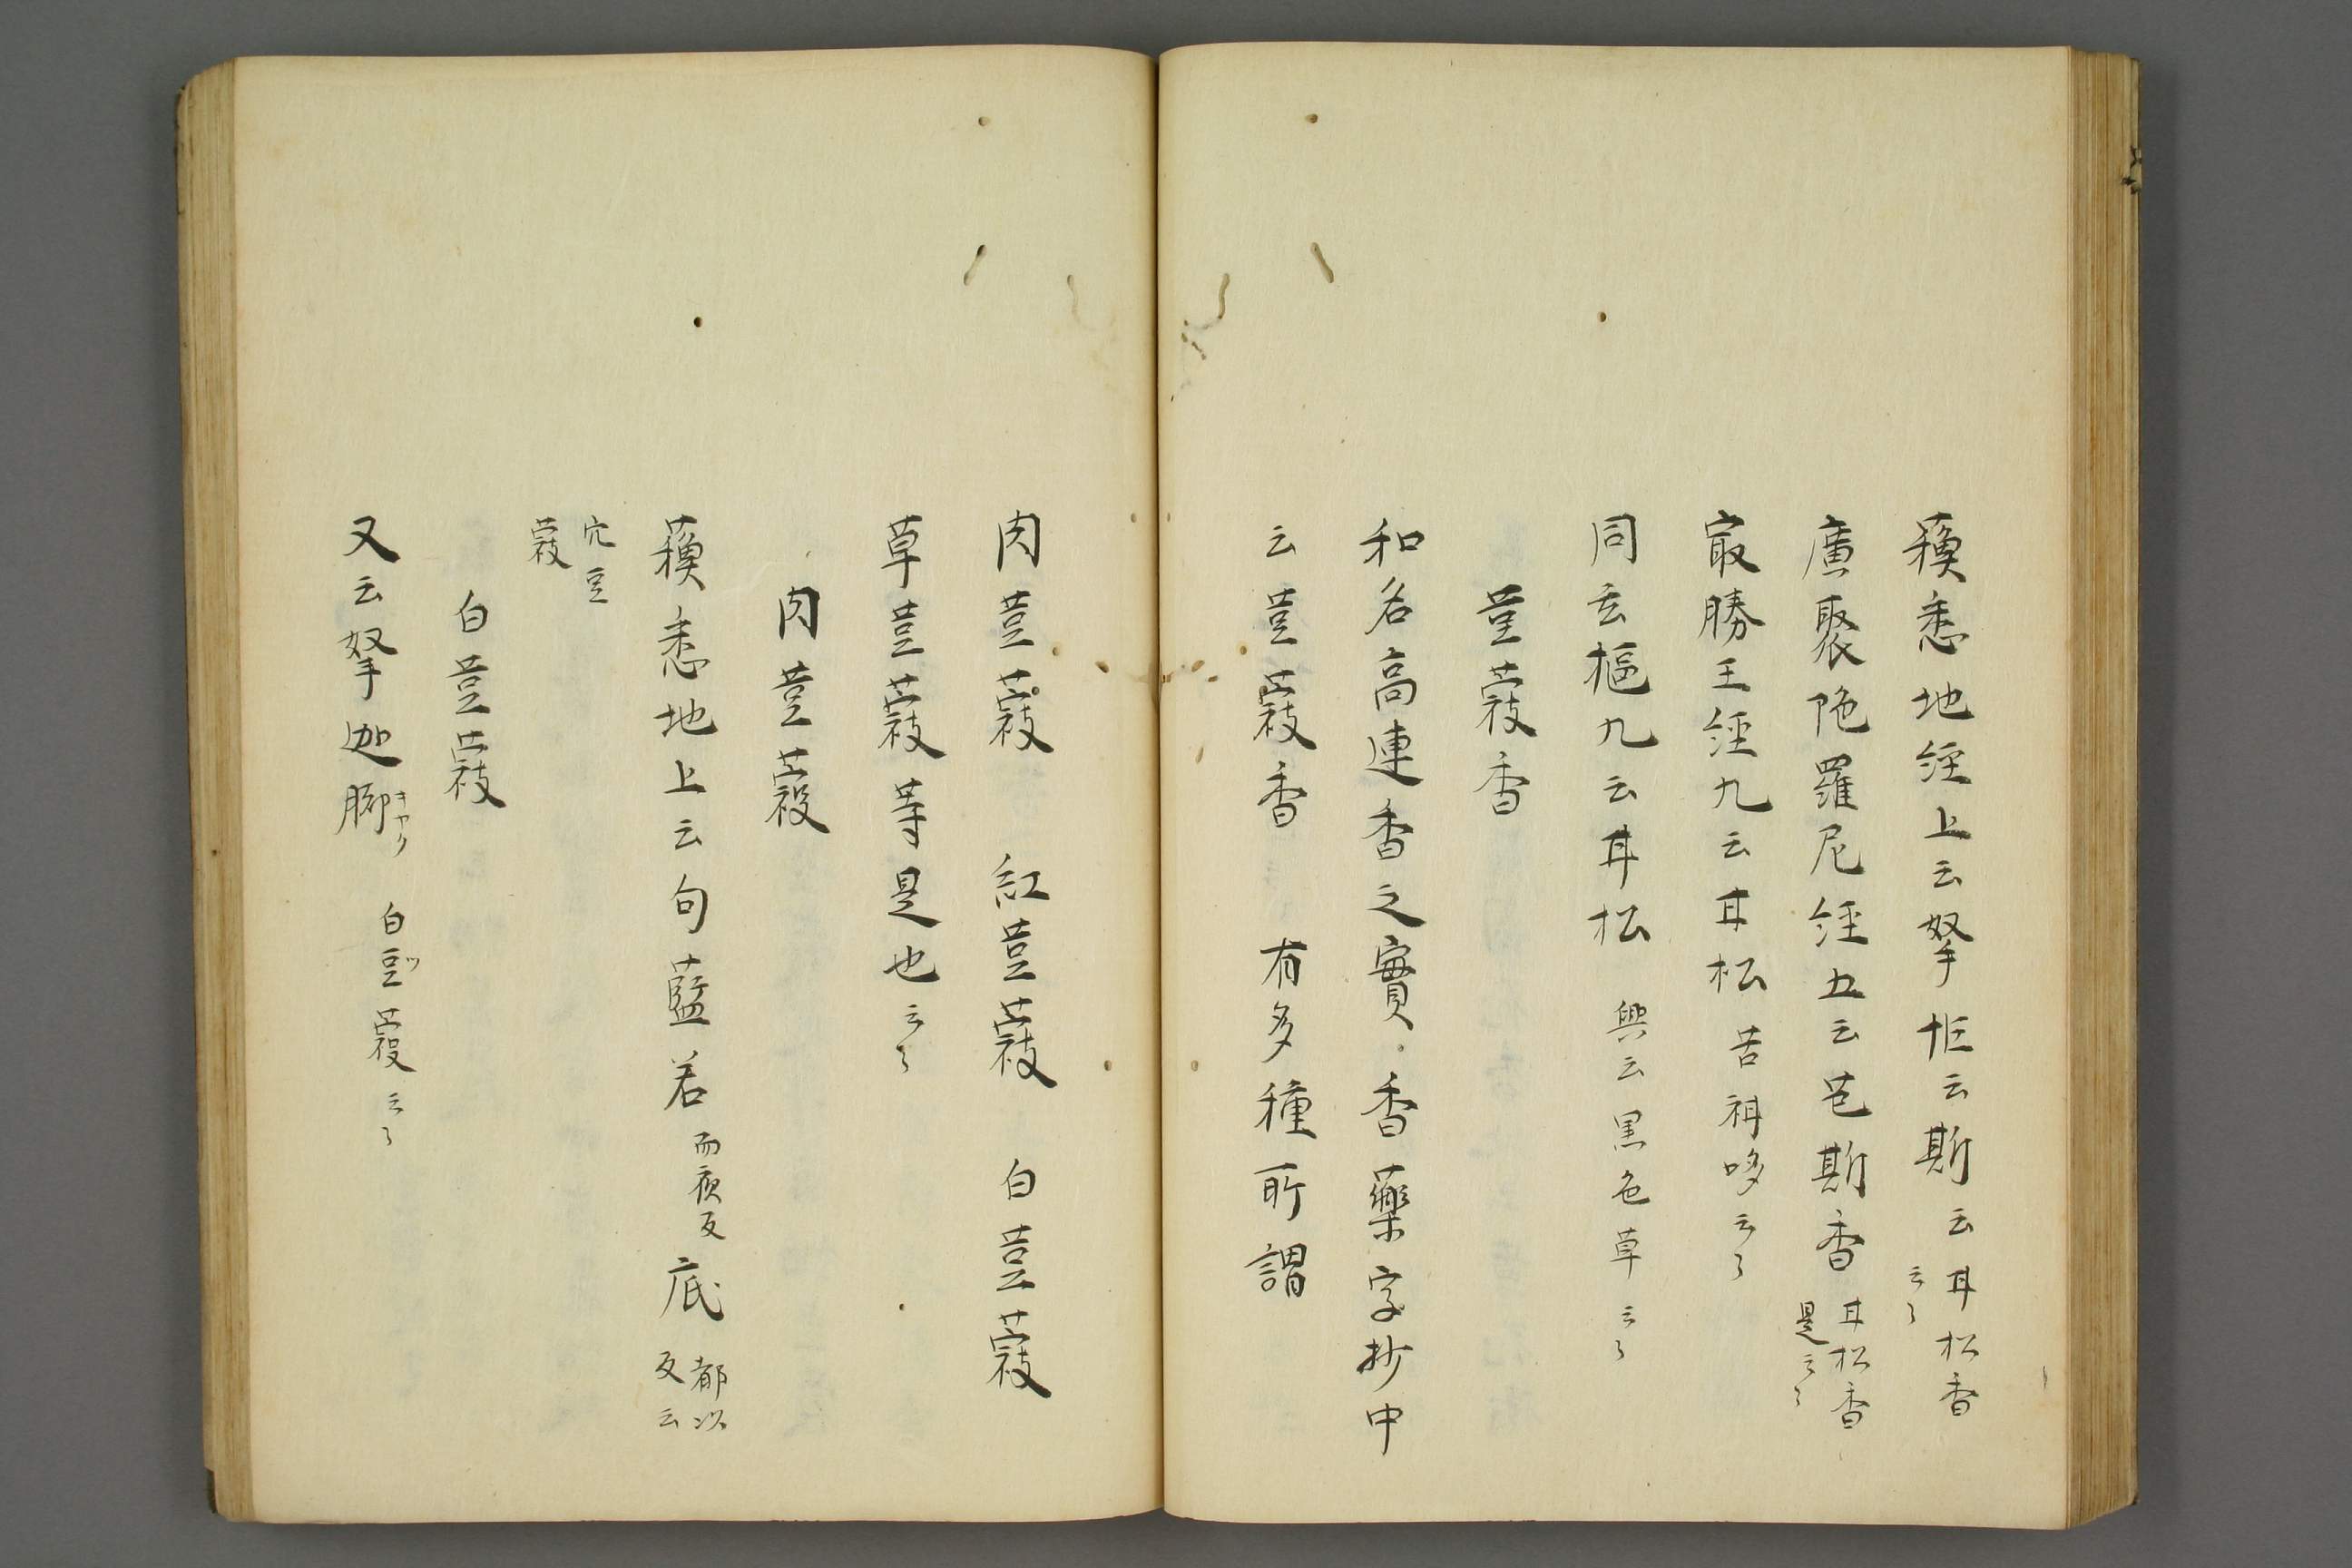 蘓悉地經上云拏怇云斯云甘松香云々
廣聚陁羅尼經五云苞斯香甘松香是云々
㝡勝王經九云甘松苦弭哆云々
同玄樞九云甘松 興云黒色草云々
荳蔲香
和名高連香之實香藥字抄中
云荳蔲香 有多種所謂
肉荳蔲 紅荳蔲 白荳蔲
草荳蔲等是也云々
肉荳蔲
蘓悉地上云句藍若而夜反底都以反云
宍豆蔲
白荳蔲
又云拏迦脚キヤク 白豆ツ蔲云々